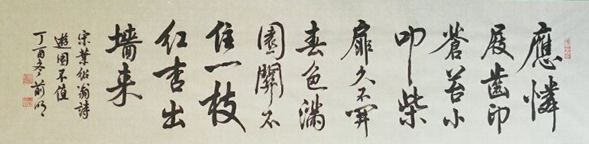 應憐
屐齒印
蒼苔小
叩柴
扉久不開
春色滿
園關不
住一枝
紅杏出
墻来
宋葉紹翁詩
遊園不值
丁酉冬